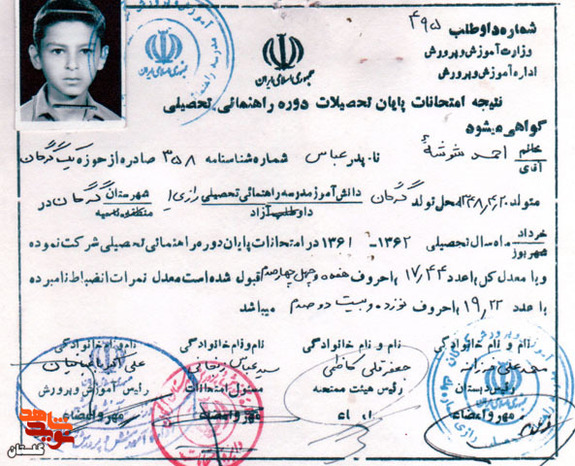 شماره داوطلب ۴۹۵
وزارت آموزش و پرورش
اداره آموزش و پرورش
جمهوری اسلامی ایران
جمهوری اسلامی ایران
نتیجه امتحانات پایان تحصیلات دوره راهنمائی تحصیلی
گواهی میشود
خانم
آقای
احمد شوشهٔ نام پدر عباس شماره شناسنامه ۳۵۸ صادره از حوزه یک گرگان
متولد ۱۳۴۸/۴/۲۰ محل تولد گرگان دانش آموز مدرسه راهنمائی تحصیلی رازی ۱ شهرستان گرگان در
داوطلب آزاد
منطقه ناحیه
خرداد
شهریور
ماه سال تحصیلی ۱۳۶۲ - ۱۳۶۱ در امتحانات پایان دوره راهنمائی تحصیلی شرکت نموده
و با معدل کل با عدد ۱۷/۴۴ باحروف هفده و چهل چهار صدم قبول شده است معدل نمرات انضباط نامبرده
با عدد ۱۹/۲۲ باحروف نوزده و بیست دو صدم میباشد.
نام و نام خانوادگی نام و نام خانوادگی نام و نام خانوادگی نام و نام خانوادگی
جعفرقلی کاظمی سید عباس علی اکبر
رئیس دبستان رئیس هیئت ممتحنه مسئول امتحانات رئیس آموزش و پرورش
مهر و امضاء امضاء مهر و امضاء مهر و امضاء
گلستان